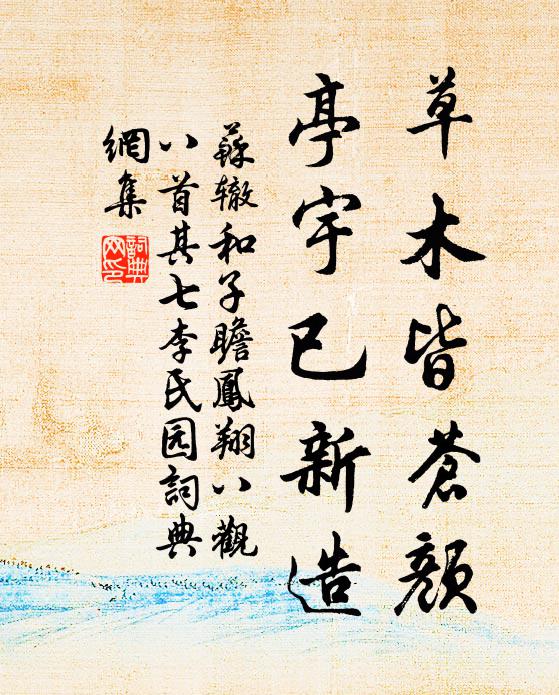 草木皆蒼顏
亭宇已新造
蘇辙和子瞻鳳翔八觀
八首其七李氏园詞典
網集
詞典
网印